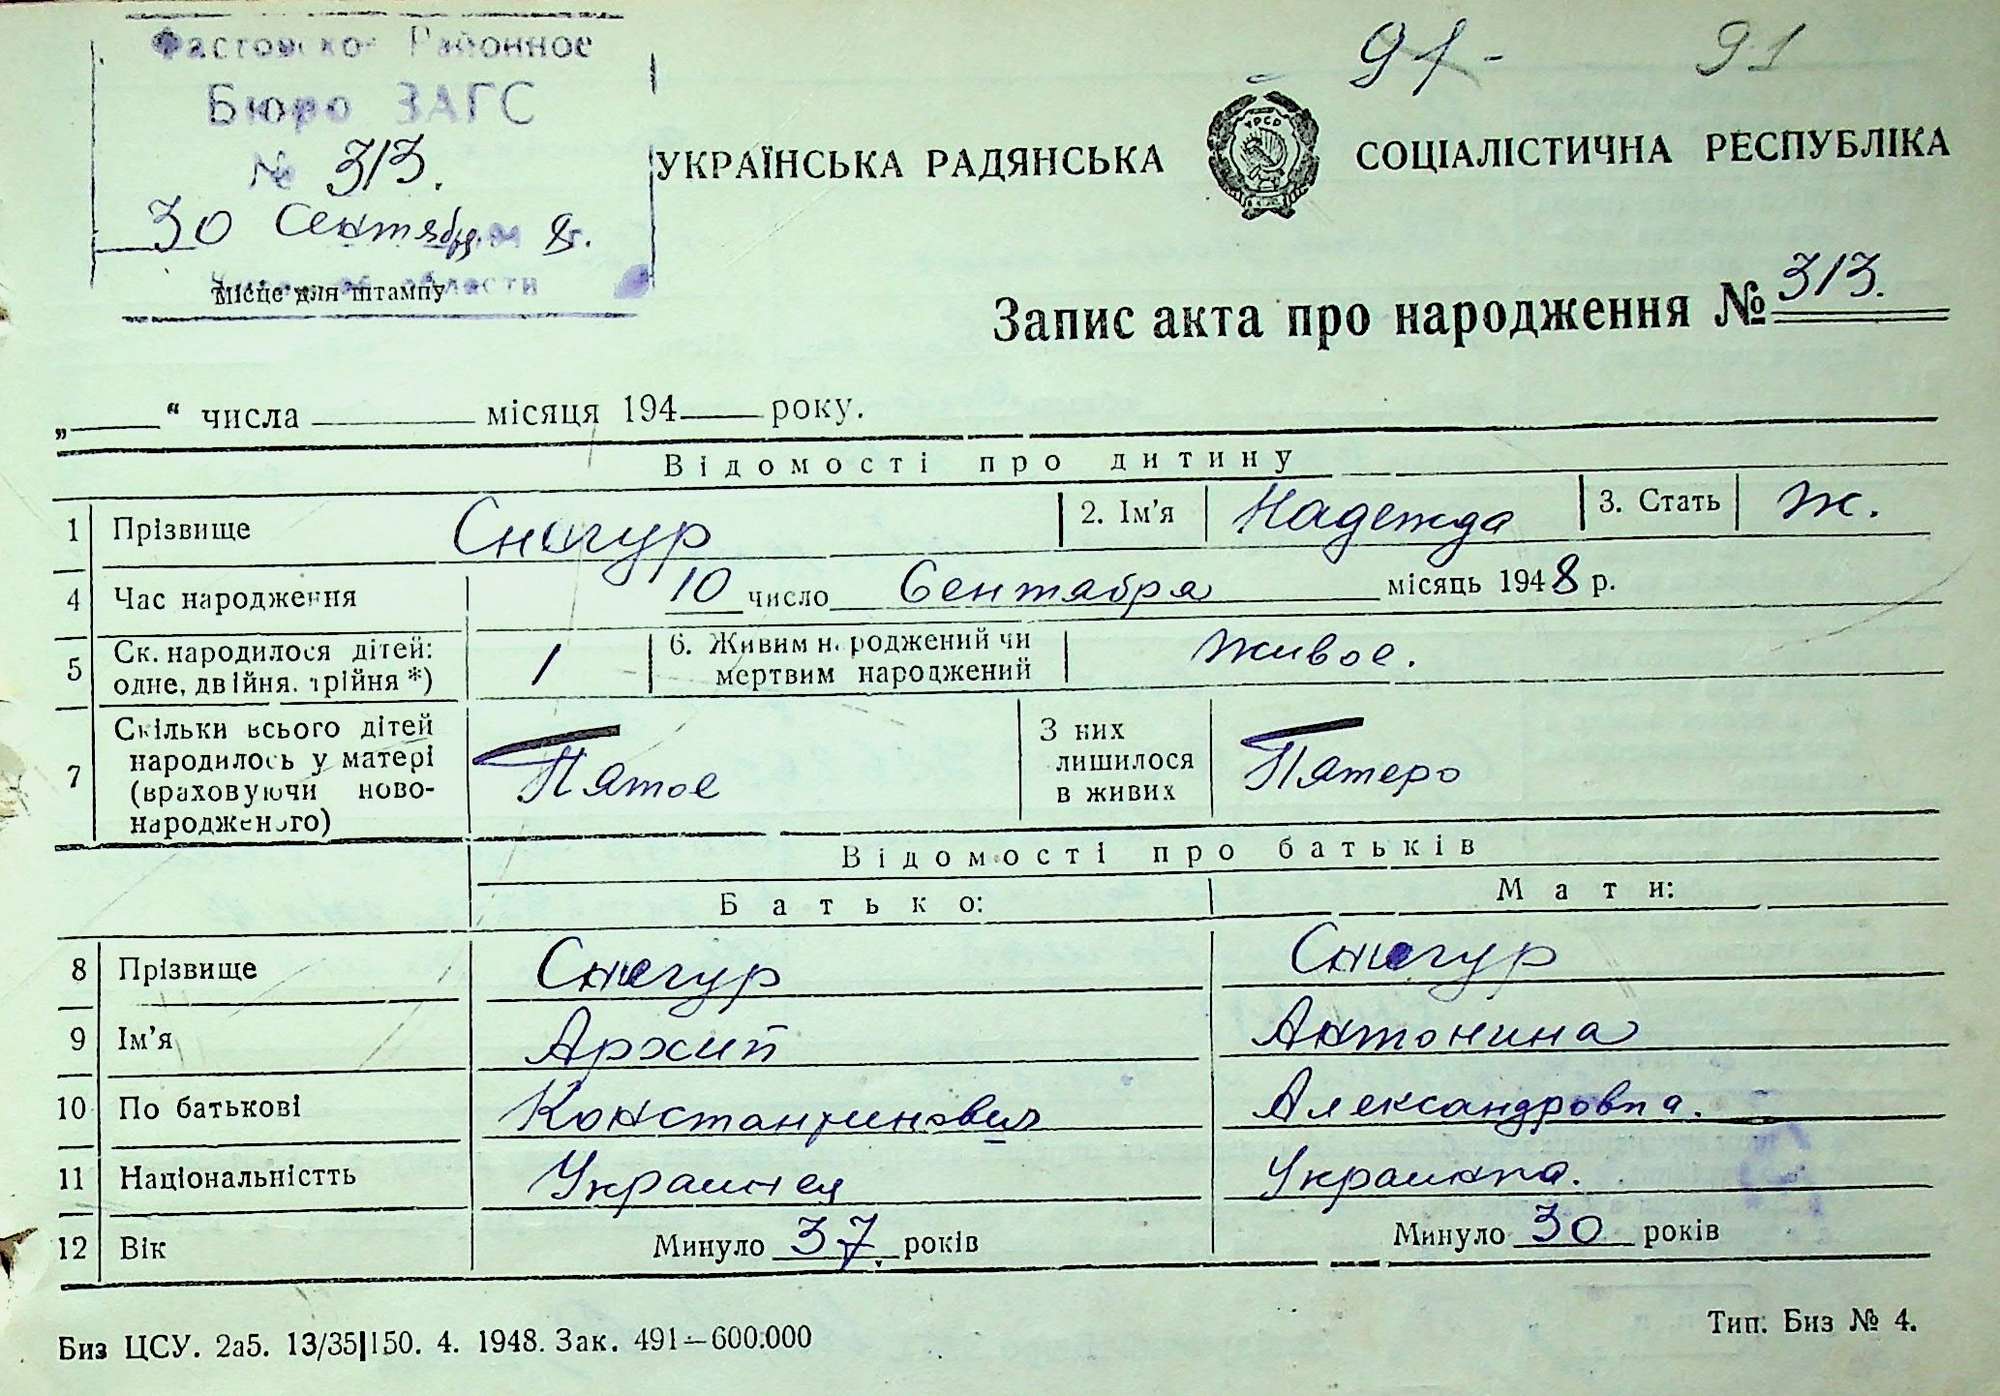 91 - 91
Фастовское Районное
Бюро ЗАГС
№ 313.
30 Сентября 8г.
області
Місце для штампу
УКРАЇНСЬКА РАДЯНСЬКА СОЦІАЛІСТИЧНА РЕСПУБЛІКА
УРСР
Запис акта про народження № 313.
„ “ числа місяця 194 року.
Відомості про дитину
1 Прізвище Снегур 2. Ім'я Надежда 3. Стать ж.
4 Час народження 10 число Сентября місяць 1948 р.
5 Ск. народилося дітей: одне, двійня, трійня *) 1 6. Живим народжений чи мертвим народжений живое.
7 Скільки всього дітей народилось у матері (враховуючи ново-народженого) Пятое З них лишилося в живих Пятеро
Відомості про батьків
Батько: Мати:
8 Прізвище Снегур Снегур
9 Ім'я Архип Антонина
10 По батькові Константинович Александровна.
11 Національністть Украинец Украинка.
12 Вік Минуло 37 років Минуло 30 років
Биз ЦСУ. 2а5. 13/35|150. 4. 1948. Зак. 491—600.000 Тип. Биз № 4.